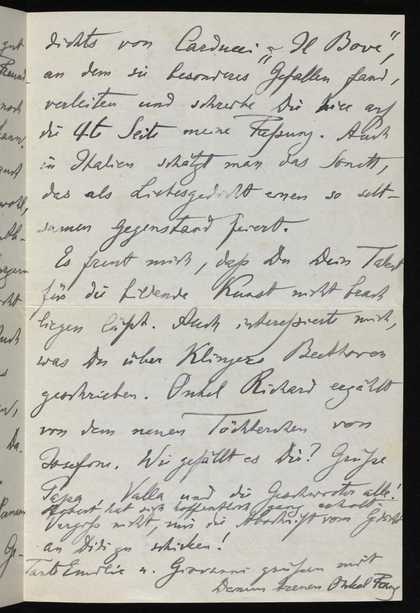 dichts von Carducci „Il Bove",
an dem sie besonderes Gefallen fand,
verleiten und schreibe Dir hier auf
die 4te Seite meine Fassung. Auch
in Italien schätzt man das Sonett,
das als Liebesgedicht einen so selt-
samen Gegenstand feiert.
Es freut mich, daß Du Dein Talent
für die bildende Kunst nicht brach
liegen läßt. Auch interessiert mich,
was Du über Klingers Beethoven
geschrieben. Onkel Richard erzählt
von dem neuen Töchterchen von
Josefine. Wie gefällt es Dir? Grüße
Papa, Valla und die Geschwister alle!
Robert hat sich hoffentlich ganz erholt.
Vergiß nicht, mir die Abschrift vom Gedicht
an Didi zu schicken!
Tante Emilie u. Giovanni grüßen mit
Deinem treuen Onkel